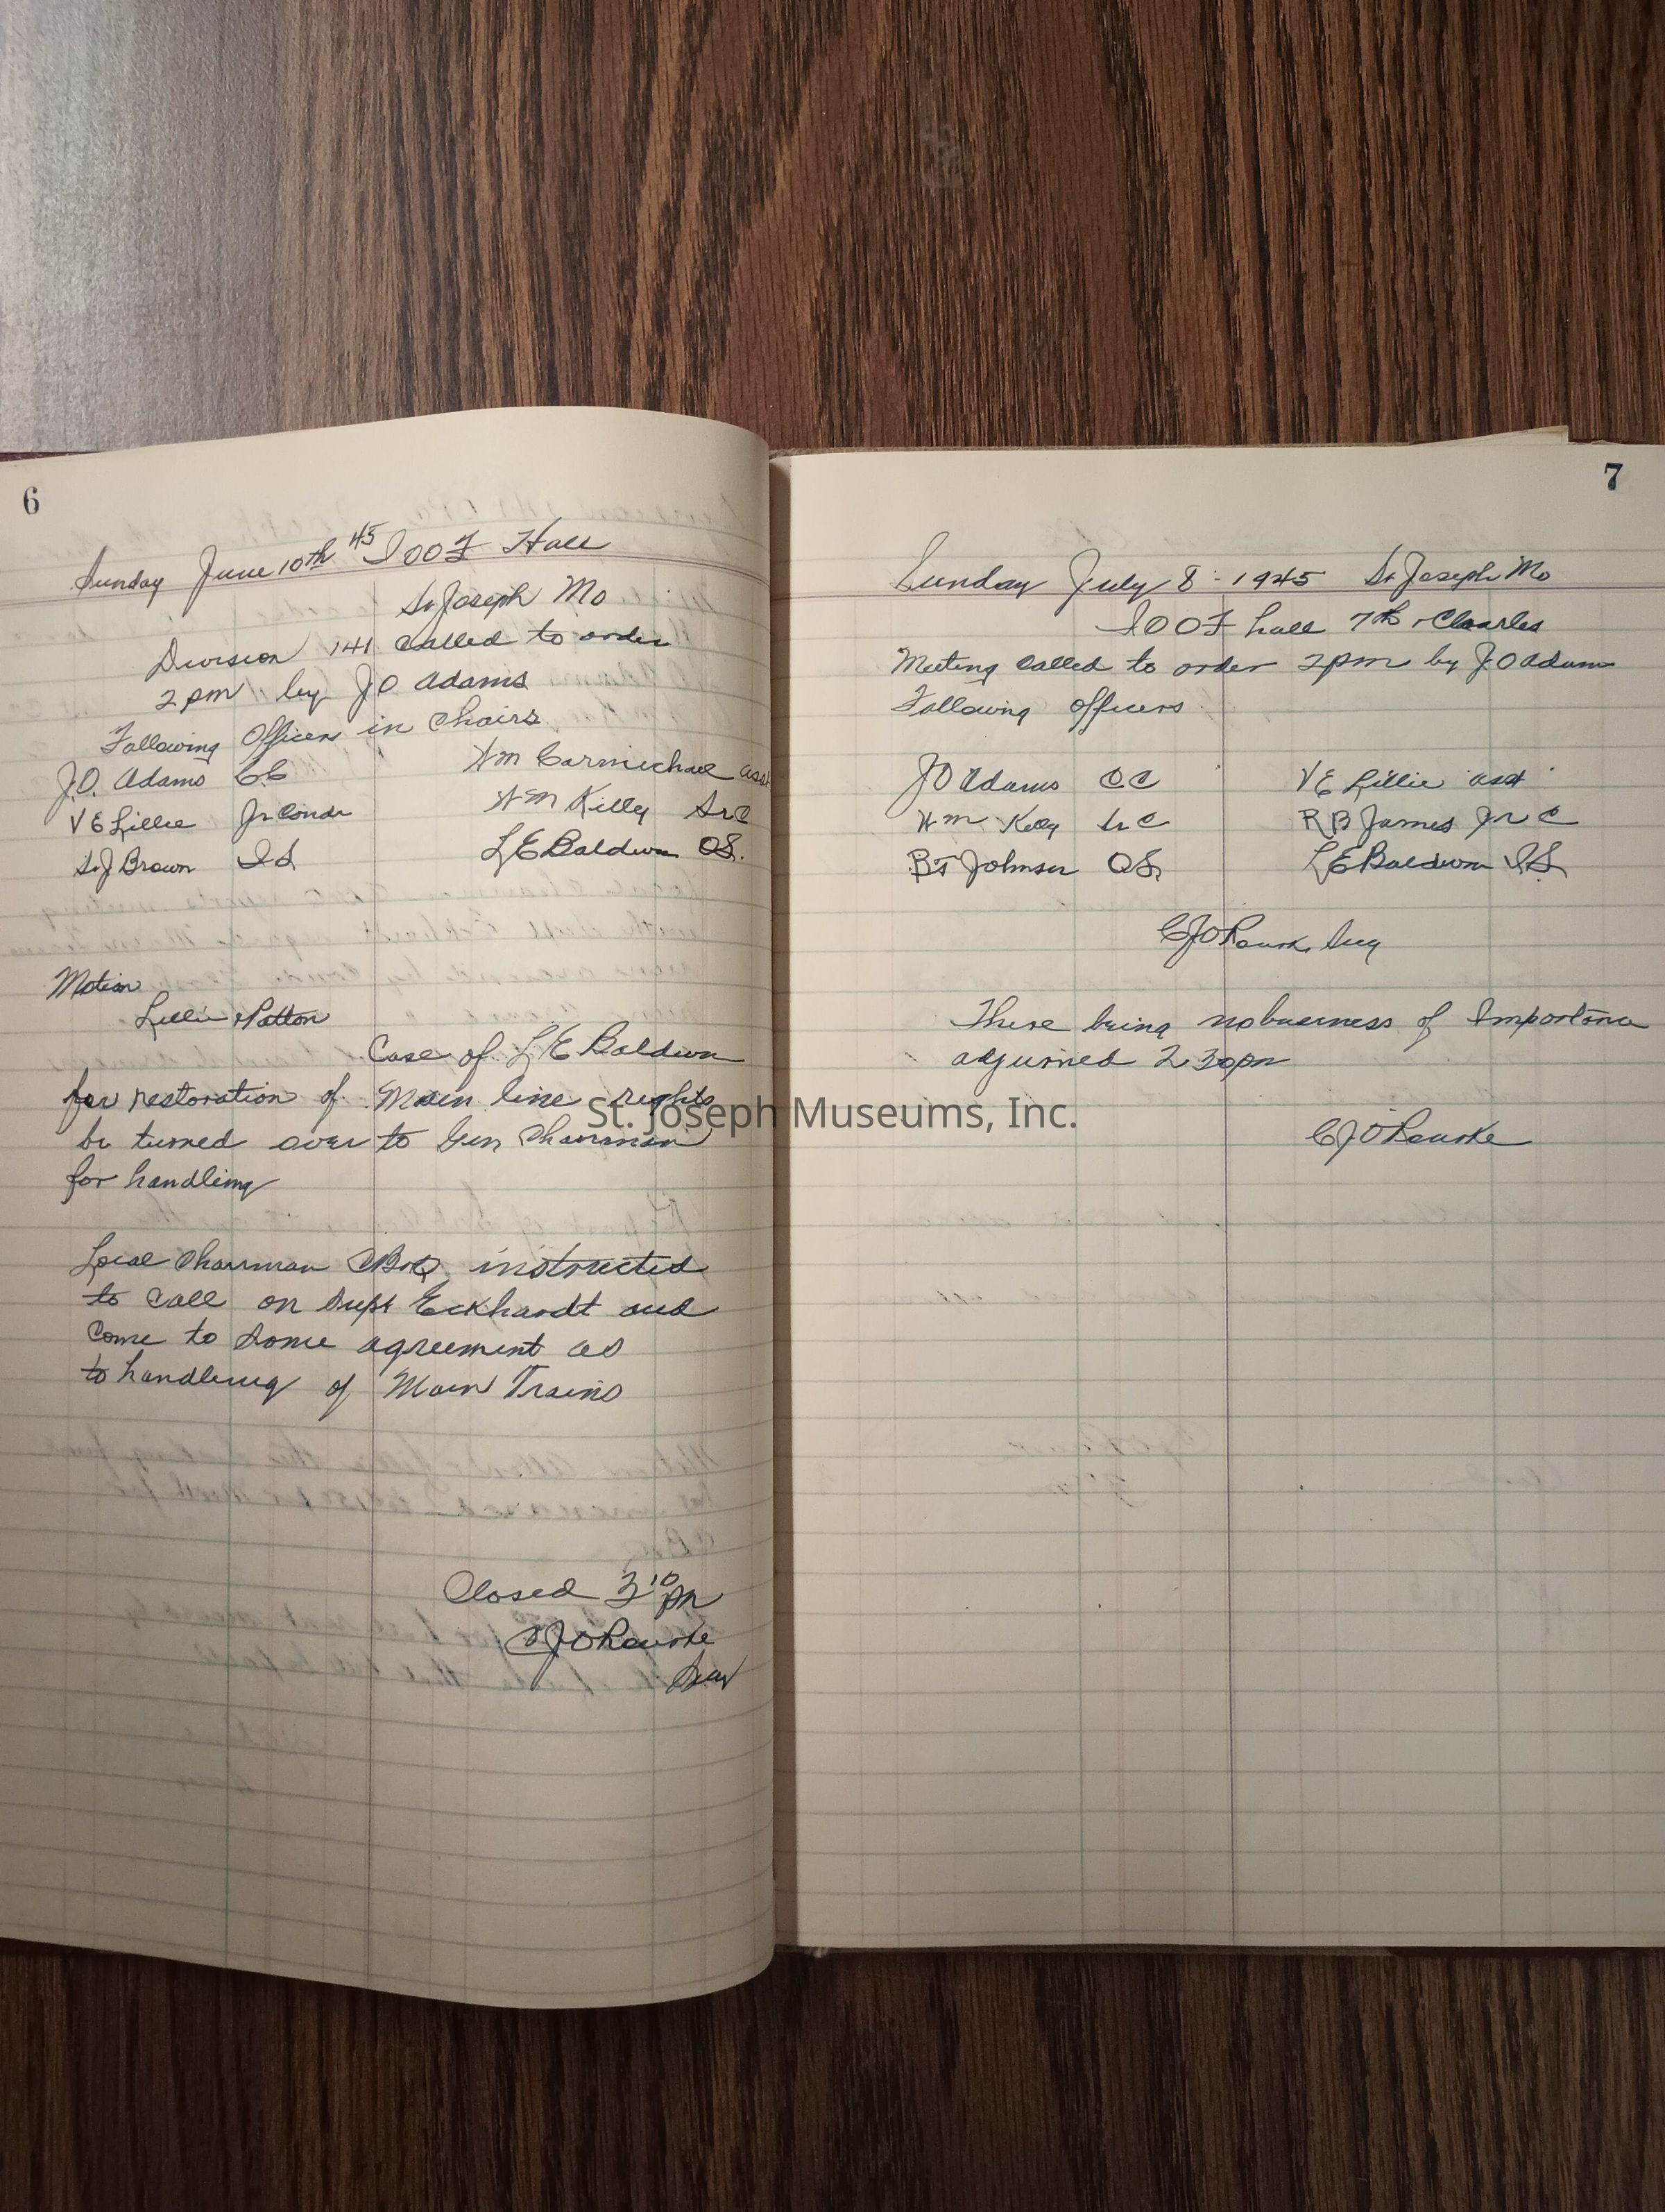 6
Sunday June 10th 45 IOOF Hall
St Joseph Mo
Division 141 Called to order
2 pm by J O Adams
Following Officers in Chairs
J.O. Adams CC Wm Carmichael asst
V E Lillie Jr Condr Wm Kelly Sr C
S J Brown I S L E Baldwin OS.
Motion
Lillie & Patton
Case of L E Baldwin
for restoration of Main line rights
be turned over to Gen Chairman
for handling
Local Chairman CB&Q instructed
to call on Supt Eckhardt and
Come to Some agreement as
to handling of Main Trains
Closed 3 10 PM
C J O Rourke
Secy
7
Sunday July 8 - 1945 St Joseph Mo
IOOF hall 7th & Charles
Meeting Called to order 2 pm by J O Adams
Following Officers
J O Adams C C V E Lillie asst
Wm Kelly Sr C R B James Jr C
B T Johnson OS, L E Baldwin I S,
C J O Rourke, Secy
There being no buisness of Importance
adjurned 2 30 pm
C J O Rourke
St. Joseph Museums, Inc.